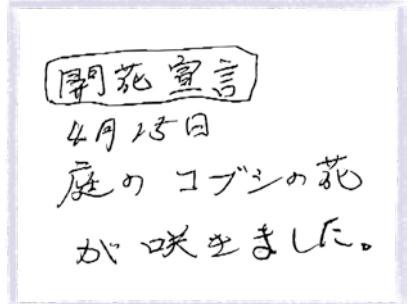 開花宣言
4月15日
庭のコブシの花
が咲きました。